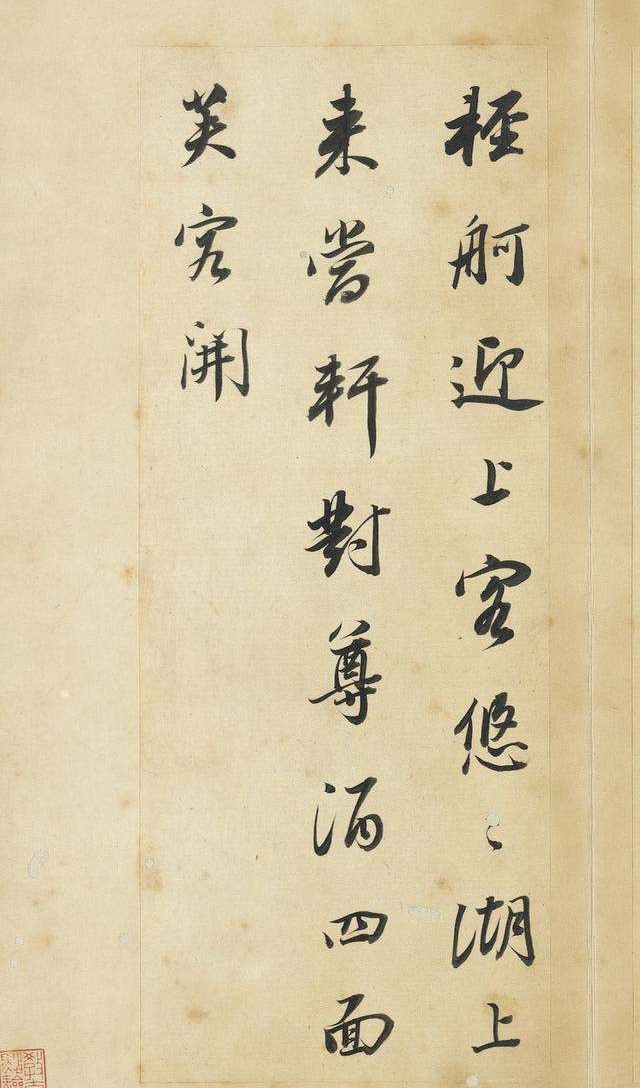 輕舸迎上客悠〻湖上
來當軒對尊酒四面
芙容開